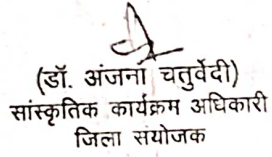 (डॉ. अंजना चतुर्वेदी)
सांस्कृतिक कार्यक्रम अधिकारी
जिला संयोजक